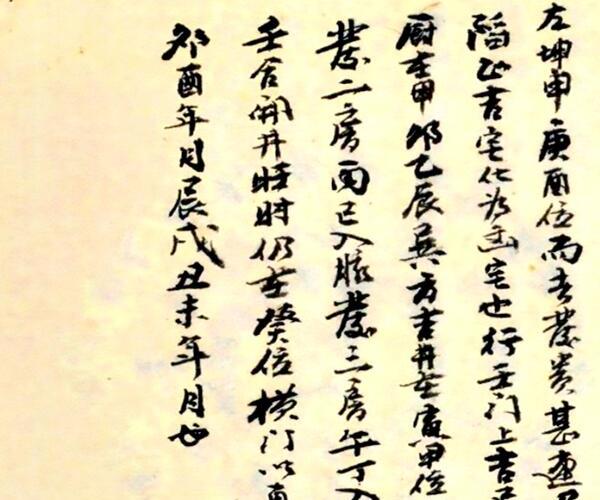 左坤申庚酉位而去發貴甚速
陷此吉宅化为凶宅也行壬门上吉
厨在甲卯乙辰巽方吉井在寅甲位
發二房丙巳入脉發三房午丁入
壬合開井旺財仍在癸位横门以
卯酉年月辰戌丑未年月